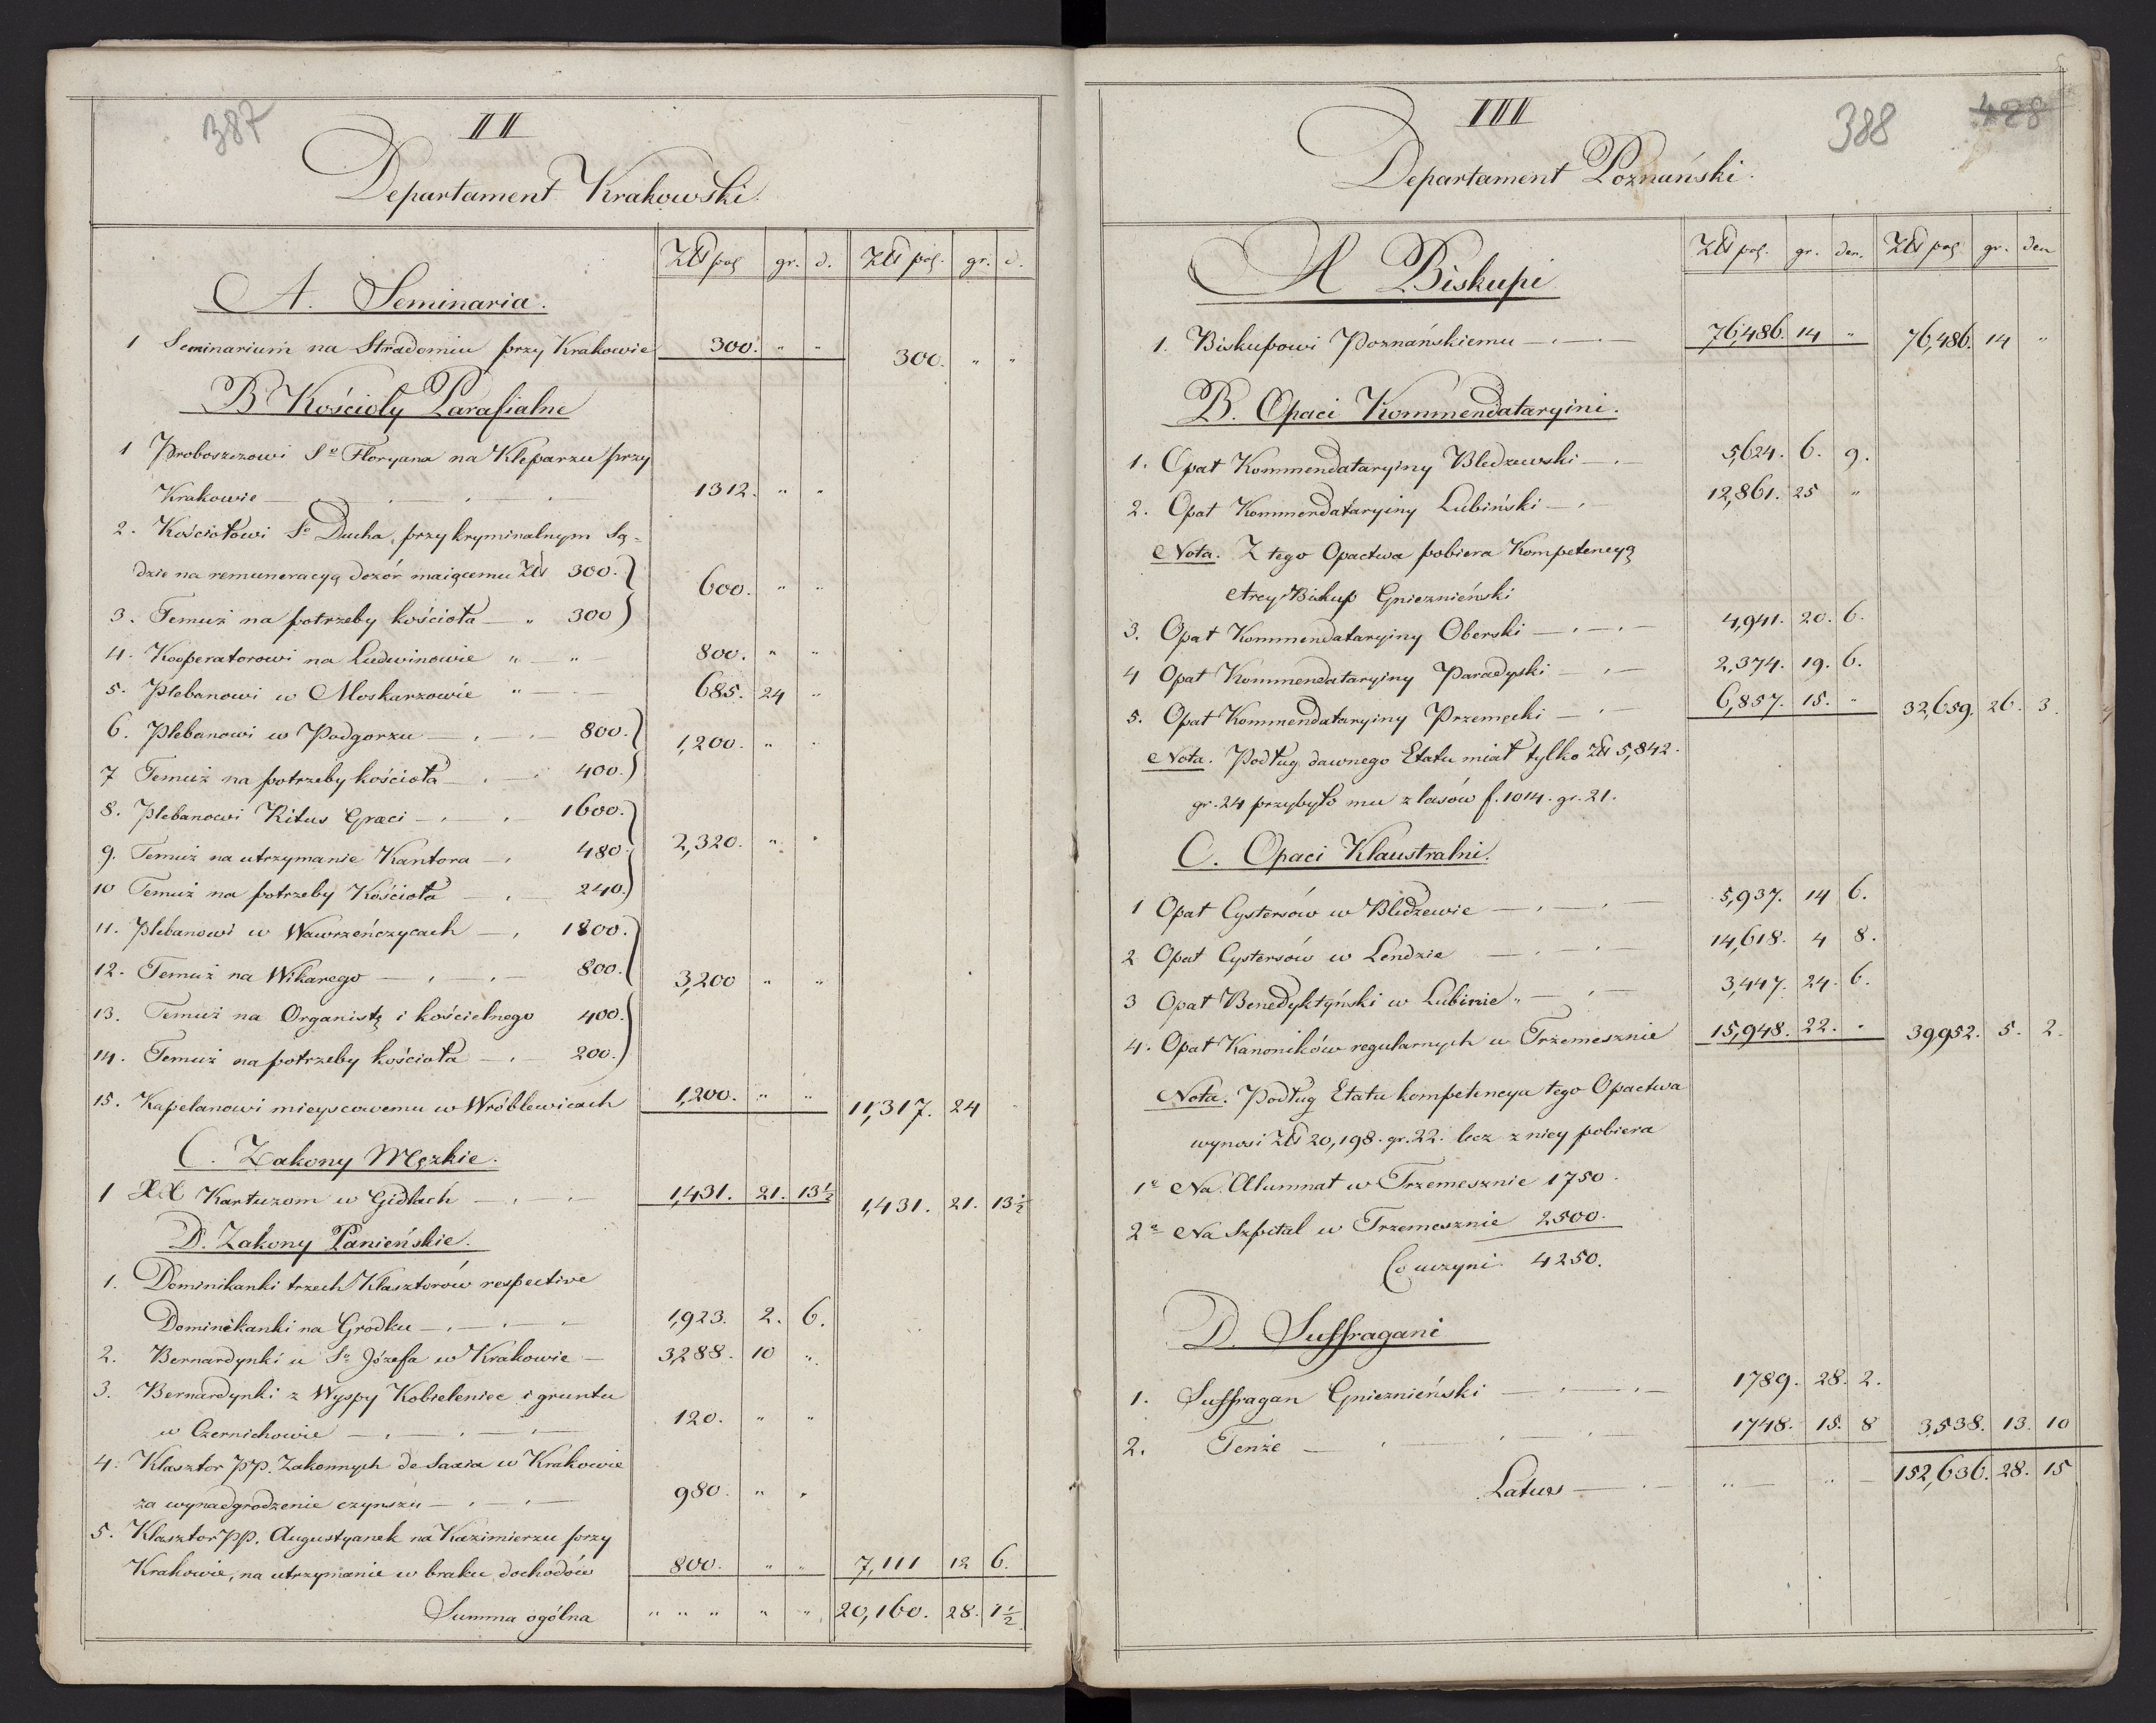 387
II
Departament Krakowski.
Złł pol gr. d. Złł pol. gr. d.
A. Seminaria.
1 Seminarium na Stradomiu przy Krakowie 300. " " 300. " "
B Kościoły Parafialne
1 Proboszczowi Sgo Floryana na Kleparzu przy
Krakowie 1312. " "
2. Kościołowi Sgo Ducha, przy kryminalnym Są-
dzie na remuneracyą dozór maiącemu Złł 300.
600. " "
3. Temuż na potrzeby kościoła " 300
4. Kooperatorowi na Ludwinowie " " 800. " "
5. Plebanowi w Moskarzowie " 685. 24 "
6. Plebanowi w Podgorzu 800.
1,200. " "
7 Temuż na potrzeby kościoła 400.
8. Plebanowi Ritus Græci 1600.
9. Temuż na utrzymanie Kantora 480. 2,320. " "
10 Temuż na potrzeby Kościoła 240.
11. Plebanowi w Wawrzeńczycach 1800.
12. Temuż na Wikarego 800. 3,200 " "
13. Temuż na Organistę i kościelnego 400.
14. Temuż na potrzeby kościoła 200.
15. Kapelanowi mieyscowemu w Wróblewicach 1,200. " " 11,317. 24
C. Zakony Męzkie.
1 XX Kartuzom w Gidlach 1,431. 21. 13½ 1,431. 21. 13½
D. Zakony Panieńskie.
1. Dominikanki trzech Klasztorów respective
Dominikanki na Grodku 1,923. 2. 6.
2. Bernardynki u Sgo Józefa w Krakowie 3,288. 10 "
3. Bernardynki z Wyspy Kobieleniec i gruntu
w Czernichowie 120. " "
4. Klasztor PP. Zakonnych de Saxia w Krakowie
za wynadgrodzenie czynszu 980. " "
5. Klasztor PP. Augustyanek na Kazimierzu przy
Krakowie, na utrzymanie w braku dochodów 800. " " 7,111 12 6.
Summa ogólna " " " " " 20,160. 28. 1½
388 428
III
Departament Poznański.
Złł pol. gr. den. Złł pol gr. den
A Biskupi
1. Biskupowi Poznańskiemu 76,486. 14 " 76,486. 14 "
B. Opaci Kommendataryini.
1. Opat Kommendataryiny Bledzewski 5,624. 6. 9.
2. Opat Kommendataryiny Lubiński 12,861. 25 "
Nota. Z tego Opactwa pobiera Kompetencyą
Arcy Biskup Gnieznieński
3. Opat Kommendataryiny Oberski 4,941. 20. 6.
4 Opat Kommendataryiny Paradyski 2,374. 19. 6.
5. Opat Kommendataryiny Przemęcki 6,857. 15. " 32,659. 26. 3.
Nota. Podług dawnego Etatu miał tylko Złł 5,842.
gr. 24 przybyło mu z lasów f. 1014. gr. 21.
C. Opaci Klaustralni.
1 Opat Cystersów w Bledzewie 5,937. 14 6.
2 Opat Cystersów w Lendzie 14,618. 4 8.
3 Opat Benedyktyński w Lubinie " 3,447. 24. 6.
4. Opat Kanoników regularnych w Trzemesznie 15,948. 22. " 39,952. 5. 2.
Nota. Podług Etatu kompetencya tego Opactwa
wynosi Złł 20,198. gr. 22. lecz z niey pobiera
1o Na Alumnat w Trzemesznie 1750.
2o Na Szpital w Trzemesznie 2500.
Co uczyni 4250.
D. Suffragani
1. Suffragan Gnieznieński 1789. 28. 2.
2. Tenże 1748. 15. 8 3,538. 13. 10
Latus " " 152,636. 28. 15